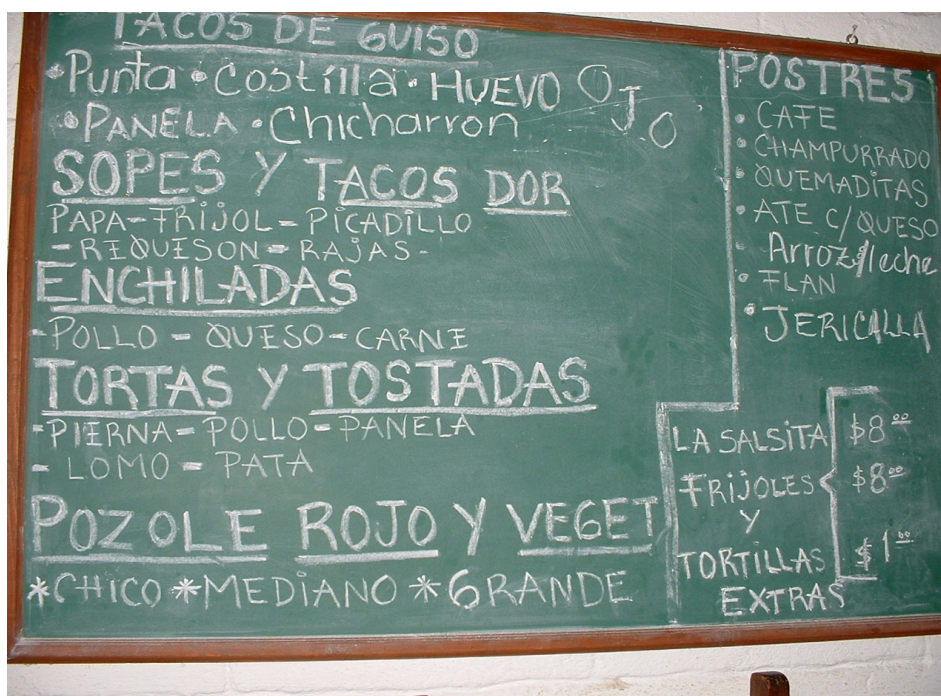 TACOS DE GUISO
• Punta • Costilla • HUEVO O J.O
• PANELA • Chicharron
SOPES Y TACOS DOR
PAPA - FRIJOL - PICADILLO
- REQUESON - RAJAS -
ENCHILADAS
- POLLO - QUESO - CARNE
TORTAS Y TOSTADAS
- PIERNA - POLLO - PANELA
- LOMO - PATA
POZOLE ROJO Y VEGET
* CHICO * MEDIANO * GRANDE
POSTRES
• CAFE
• CHAMPURRADO
• QUEMADITAS
• ATE C/QUESO
• Arroz/leche
• FLAN
• JERICALLA
LA SALSITA $8.00
FRIJOLES $8.00
Y
TORTILLAS $1.00
EXTRAS